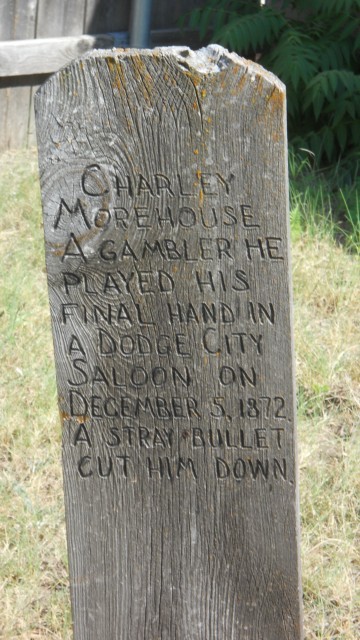 Charley
Morehouse
A gambler he
played his
final hand in
a Dodge City
Saloon on
December 5, 1872.
A stray bullet
cut him down.